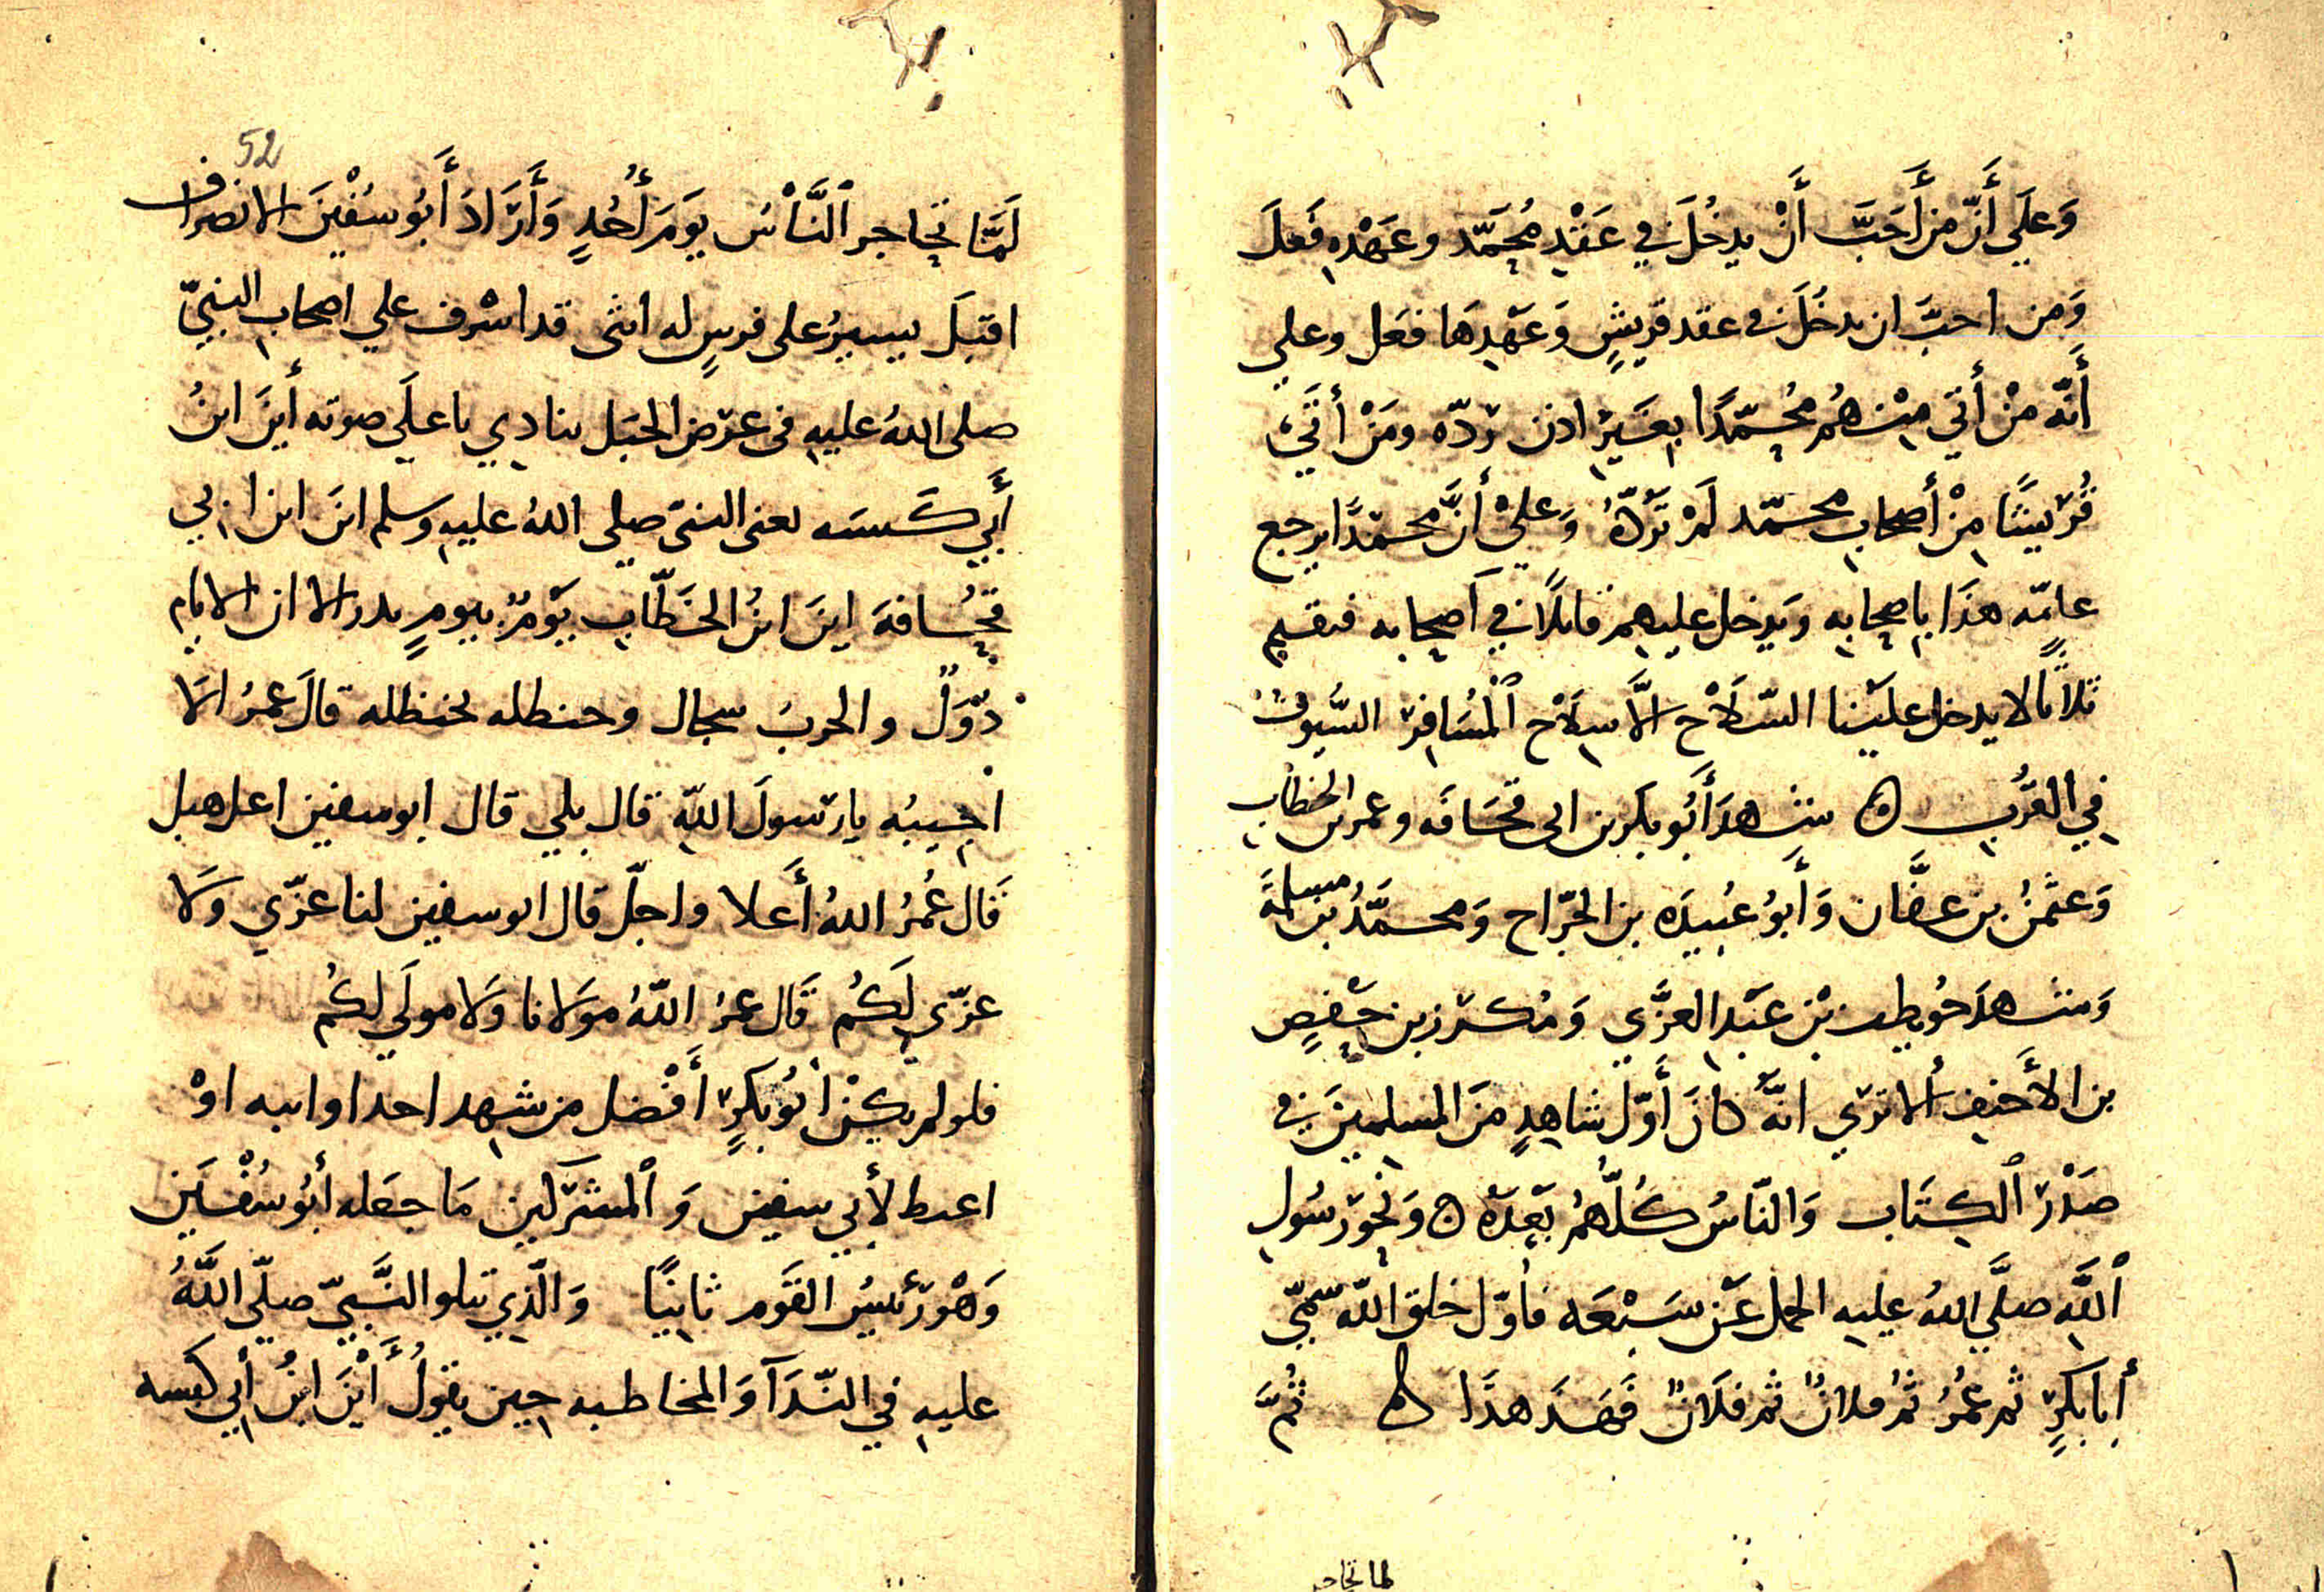 وَعَلَي أَنّ من أَحَبَّ أَنْ يدخُلَ في عَقْدِ مُحَمّد وعَهْدِه فَعلَ
وَمن احبَّ ان يدخُلَ في عقد قريشٍ وَعَهْدِهَا فعَل وعلي
أَنّه مَنْ أَتي مِنْهُم مُحمّدًا بِغَيرِ اذن رَدّه ومَنْ أتَي
قُرَيشًا مِنْ أَصحابِ محمّد لَمْ تَرُدّهُ وَعليْ أنَّ محمّدًا يرجع
عامّه هذَا بِاصحابِه وَيدخل عليهم قابلًا في اَصحابه فيقيم
ثلاثًا لا يدخل علَيْنا السّلَاحِ الَّا سِلَاح ٱلْمُسَافِرِ السُّيوف
في القُرُبِ ه شَهدَ أَبُو بكر بن ابى قحَافَه وعمر بن الخطاب
وَعثمٰنُ بن عفَّان وَأَبوُ عُبيدَه بن الجرّاح وَمحمَّدُ بن مسلمَة
وَشهدَ حُويطب بْن عَبْدِ العزَّي وَمُكرَز بن حَفصٍ
بن الأَخيف ألا تري انَّه كانَ أَوّل شاهِدٍ منَ المسلِمينَ في
صَدْرِ ٱلكِتَاب وَالنّاسُ كُلُّهُمُ بَعْدَهُ ه وَنحوَ رسُولِ
ٱللَّهِ صلَّي اللهُ عليه الجمل عَن سَبْعَه فاوّل خلق اللّه سمّيّ
أَبا بكرٍ ثم عمُرُ ثمُ فلانٌ ثم فلَانٌ فَهذَ هذَا ه ثُمَّ
لما تحاجر
52
لَمَّا تحاجر ٱلنَّاسُ يَومَ أُحُدٍ وَأَرَادَ أَبُو سُفْيٰنَ الانصراف
اقبَلَ يسيرُ على فرسٍ له انثى قد اشْرف علي اصحاب النبيّ
صلى اللهُ عليهِ في عرْض الجبَل ينادِي باعلَي صوته أينَ ابنُ
أَبي كَبسَه يعنى النبىّ صلي اللهُ عليهِ وسلم اينَ ابن ابي
قحُافةَ اينَ ابنُ الخطّابِ يَوْمٌ بيومِ بدر الا ان الايام
دُوَلٌ والحربُ سجال وحنظله بحنظله قالَ عمرُ الَا
اجيبُه يا رَسولَ اللّهِ قال بلي قال ابو سفين اعل هبل
قَال عُمرُ اللهُ أَعلا واجلّ قال ابو سفين لنا عزّي وَلَا
عزّي لَكُم قَال عمرُ اللّهُ مَولانا وَلا مولَي لكُم
فلو لم يكُنْ أبُو بكرٍ أَفْضل من شهد احدا وانبه اوْ
اعبط لأَبي سفين وَٱلمشركين مَا جعَله أبُو سُفْيَٰن
وَهُوَ رَئيسُ القَوم ثانيًا وَالّذِي يتلو النَّبيّ صلّي اللَّهُ
عليهِ في النّدَآ وَالمخاطبه حِين يقولُ أَيْنَ ابنُ أَبي كبسه